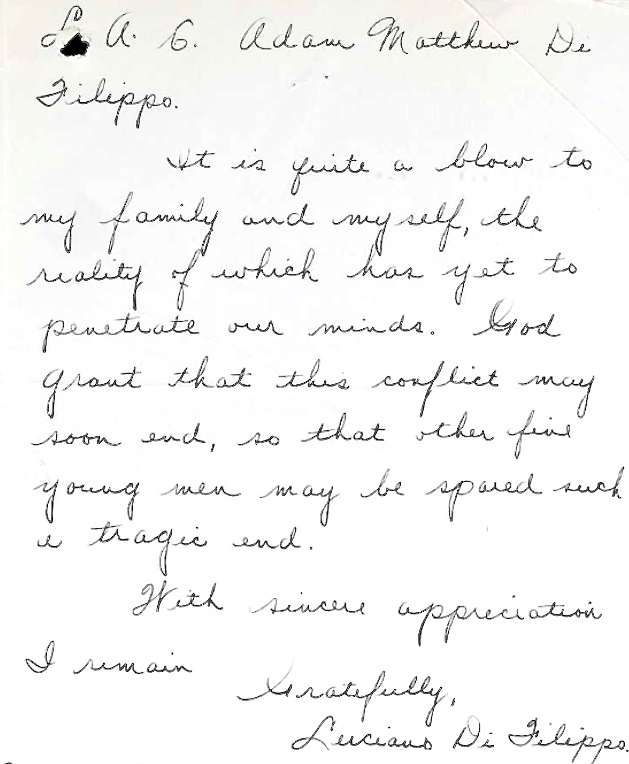 L. A. C. Adam Matthew Di
Filippo.
It is quite a blow to
my family and myself, the
reality of which has yet to
penetrate our minds. God
grant that this conflict may
soon end, so that other fine
young men may be spared such
a tragic end.
With sincere appreciation
I remain
Gratefully,
Luciano Di Filippo.